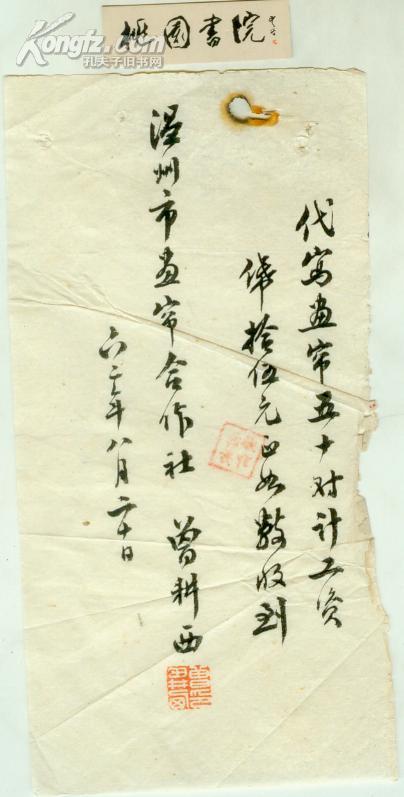 Kongfz.com
孔夫子旧书网
桃园書院
代写画帘五十对计工资
伴拾伍元正如数收到
温州市画帘合作社 曾耕西
六二年八月二十日